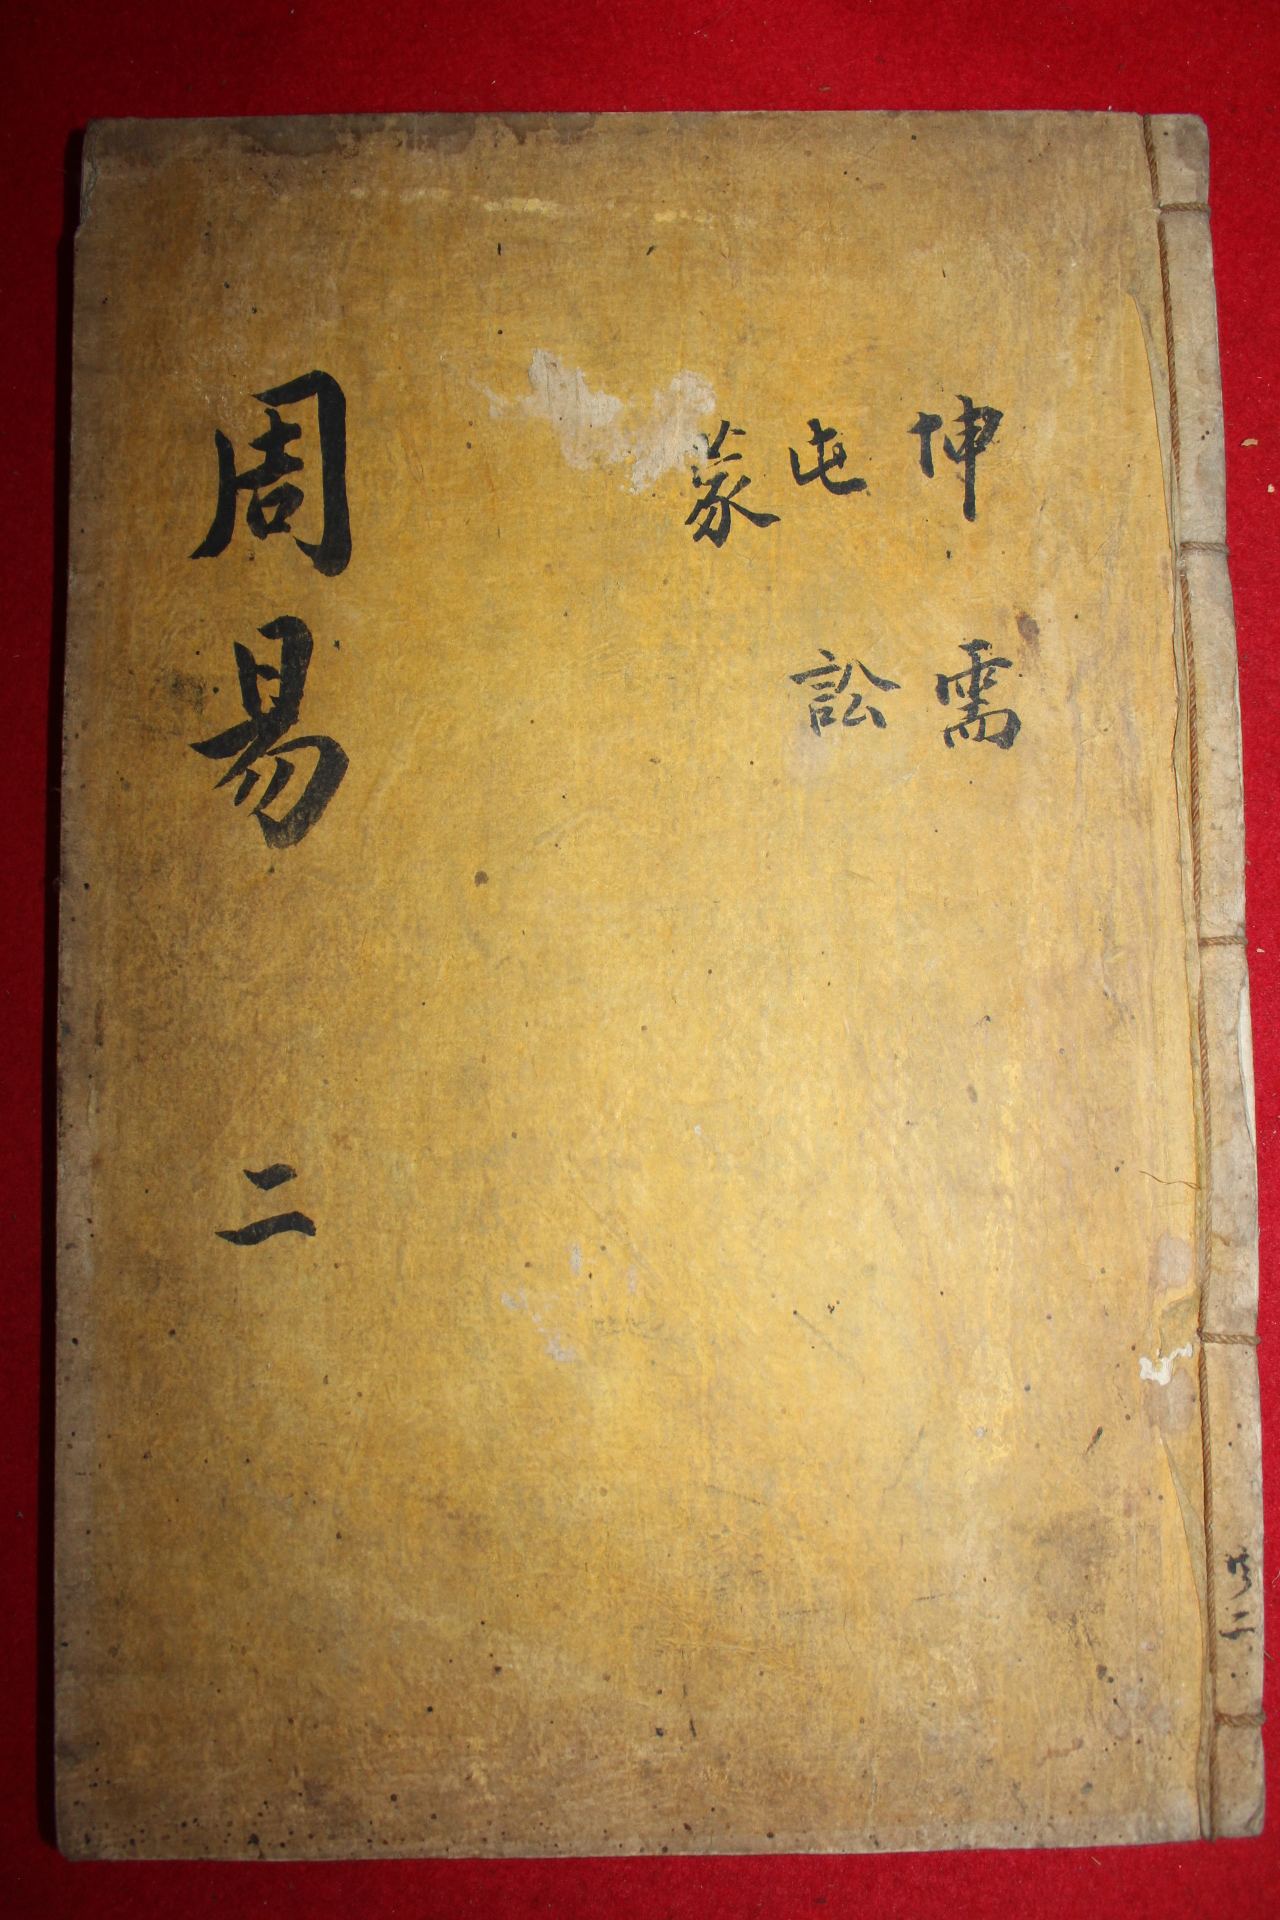 坤 屯 蒙
需 訟
周易 二